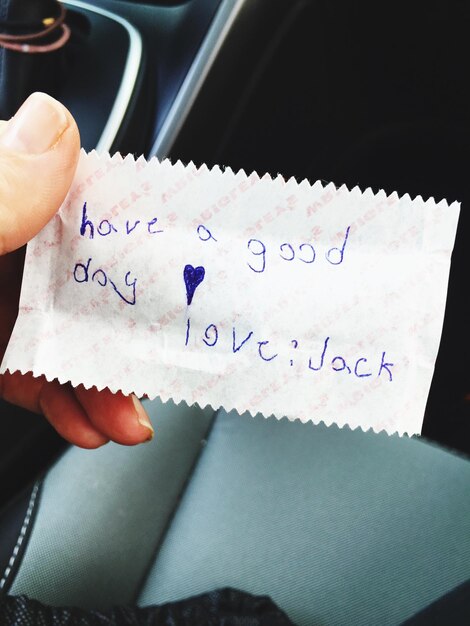 have a good
day ♥
love: Jack